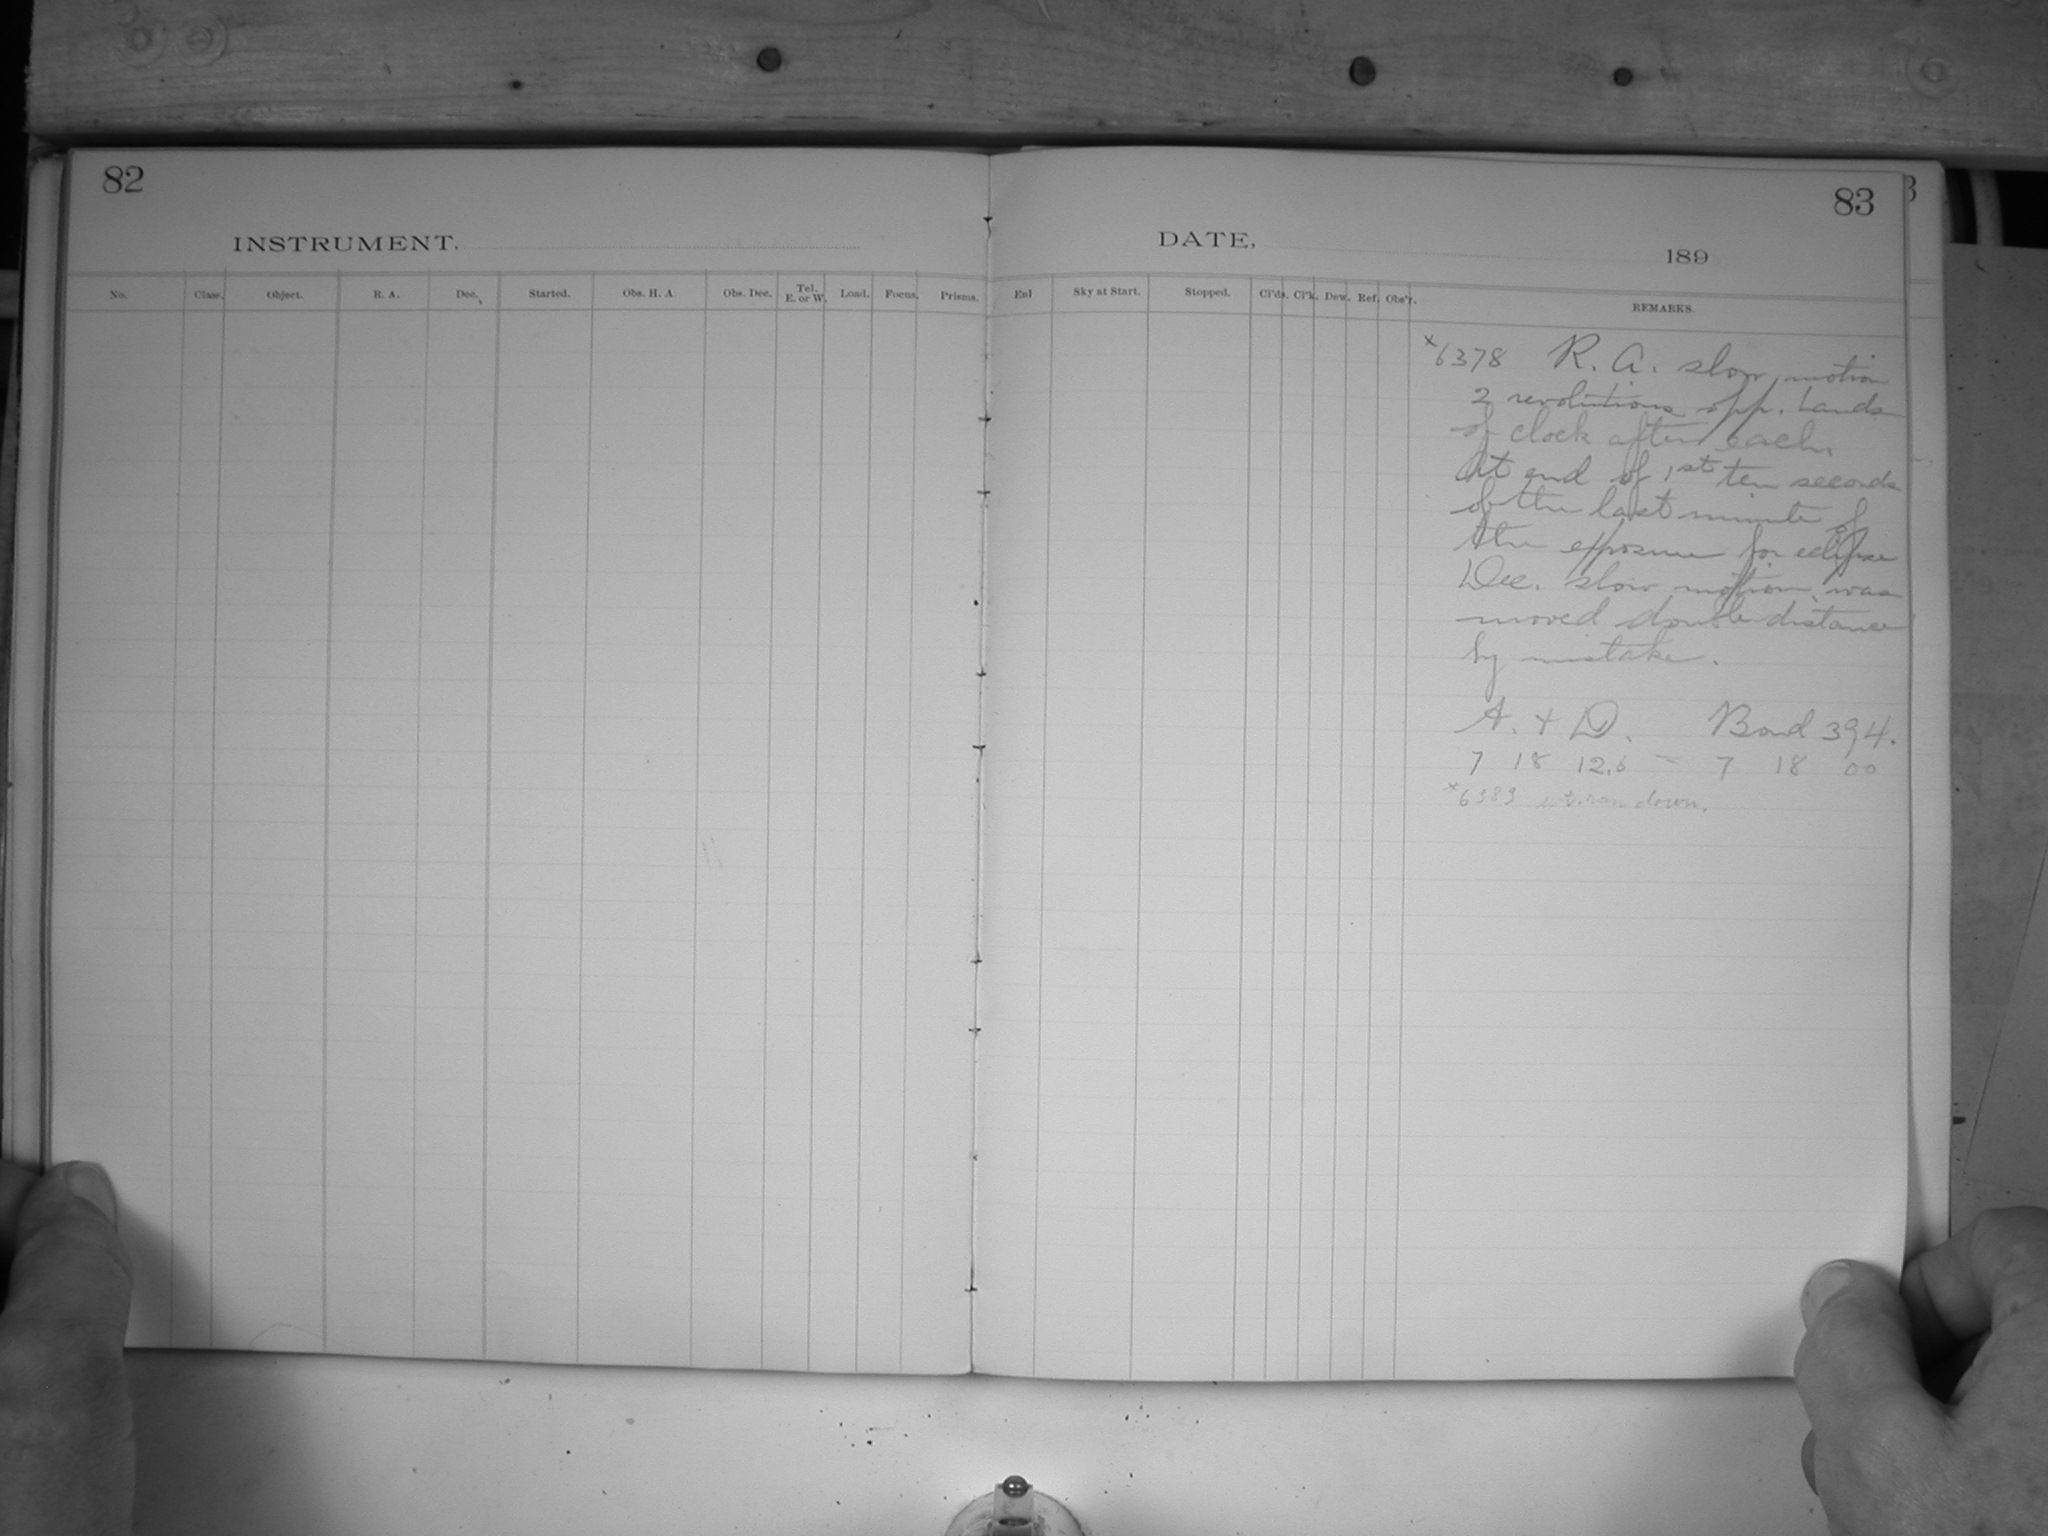 82
INSTRUMENT.
No. Class. Object. R. A. Dec. Started. Obs. H. A. Obs. Dec. Tel. E. or W. Load. Focus. Prisms.
83
DATE, 189
Enl Sky at Start. Stopped. Cl'ds. Cl'k. Dew. Ref. Obs'r. REMARKS.
x6378 R. A. slow motion
2 revolutions opp. hands
of clock after each.
At end of 1st ten seconds
of the last minute of
the exposure for eclipse
Dec. slow motion was
moved double distance
by mistake.
A. + D. Bond 394.
7 18 12.6 = 7 18 00
x6383 wt. ran down.